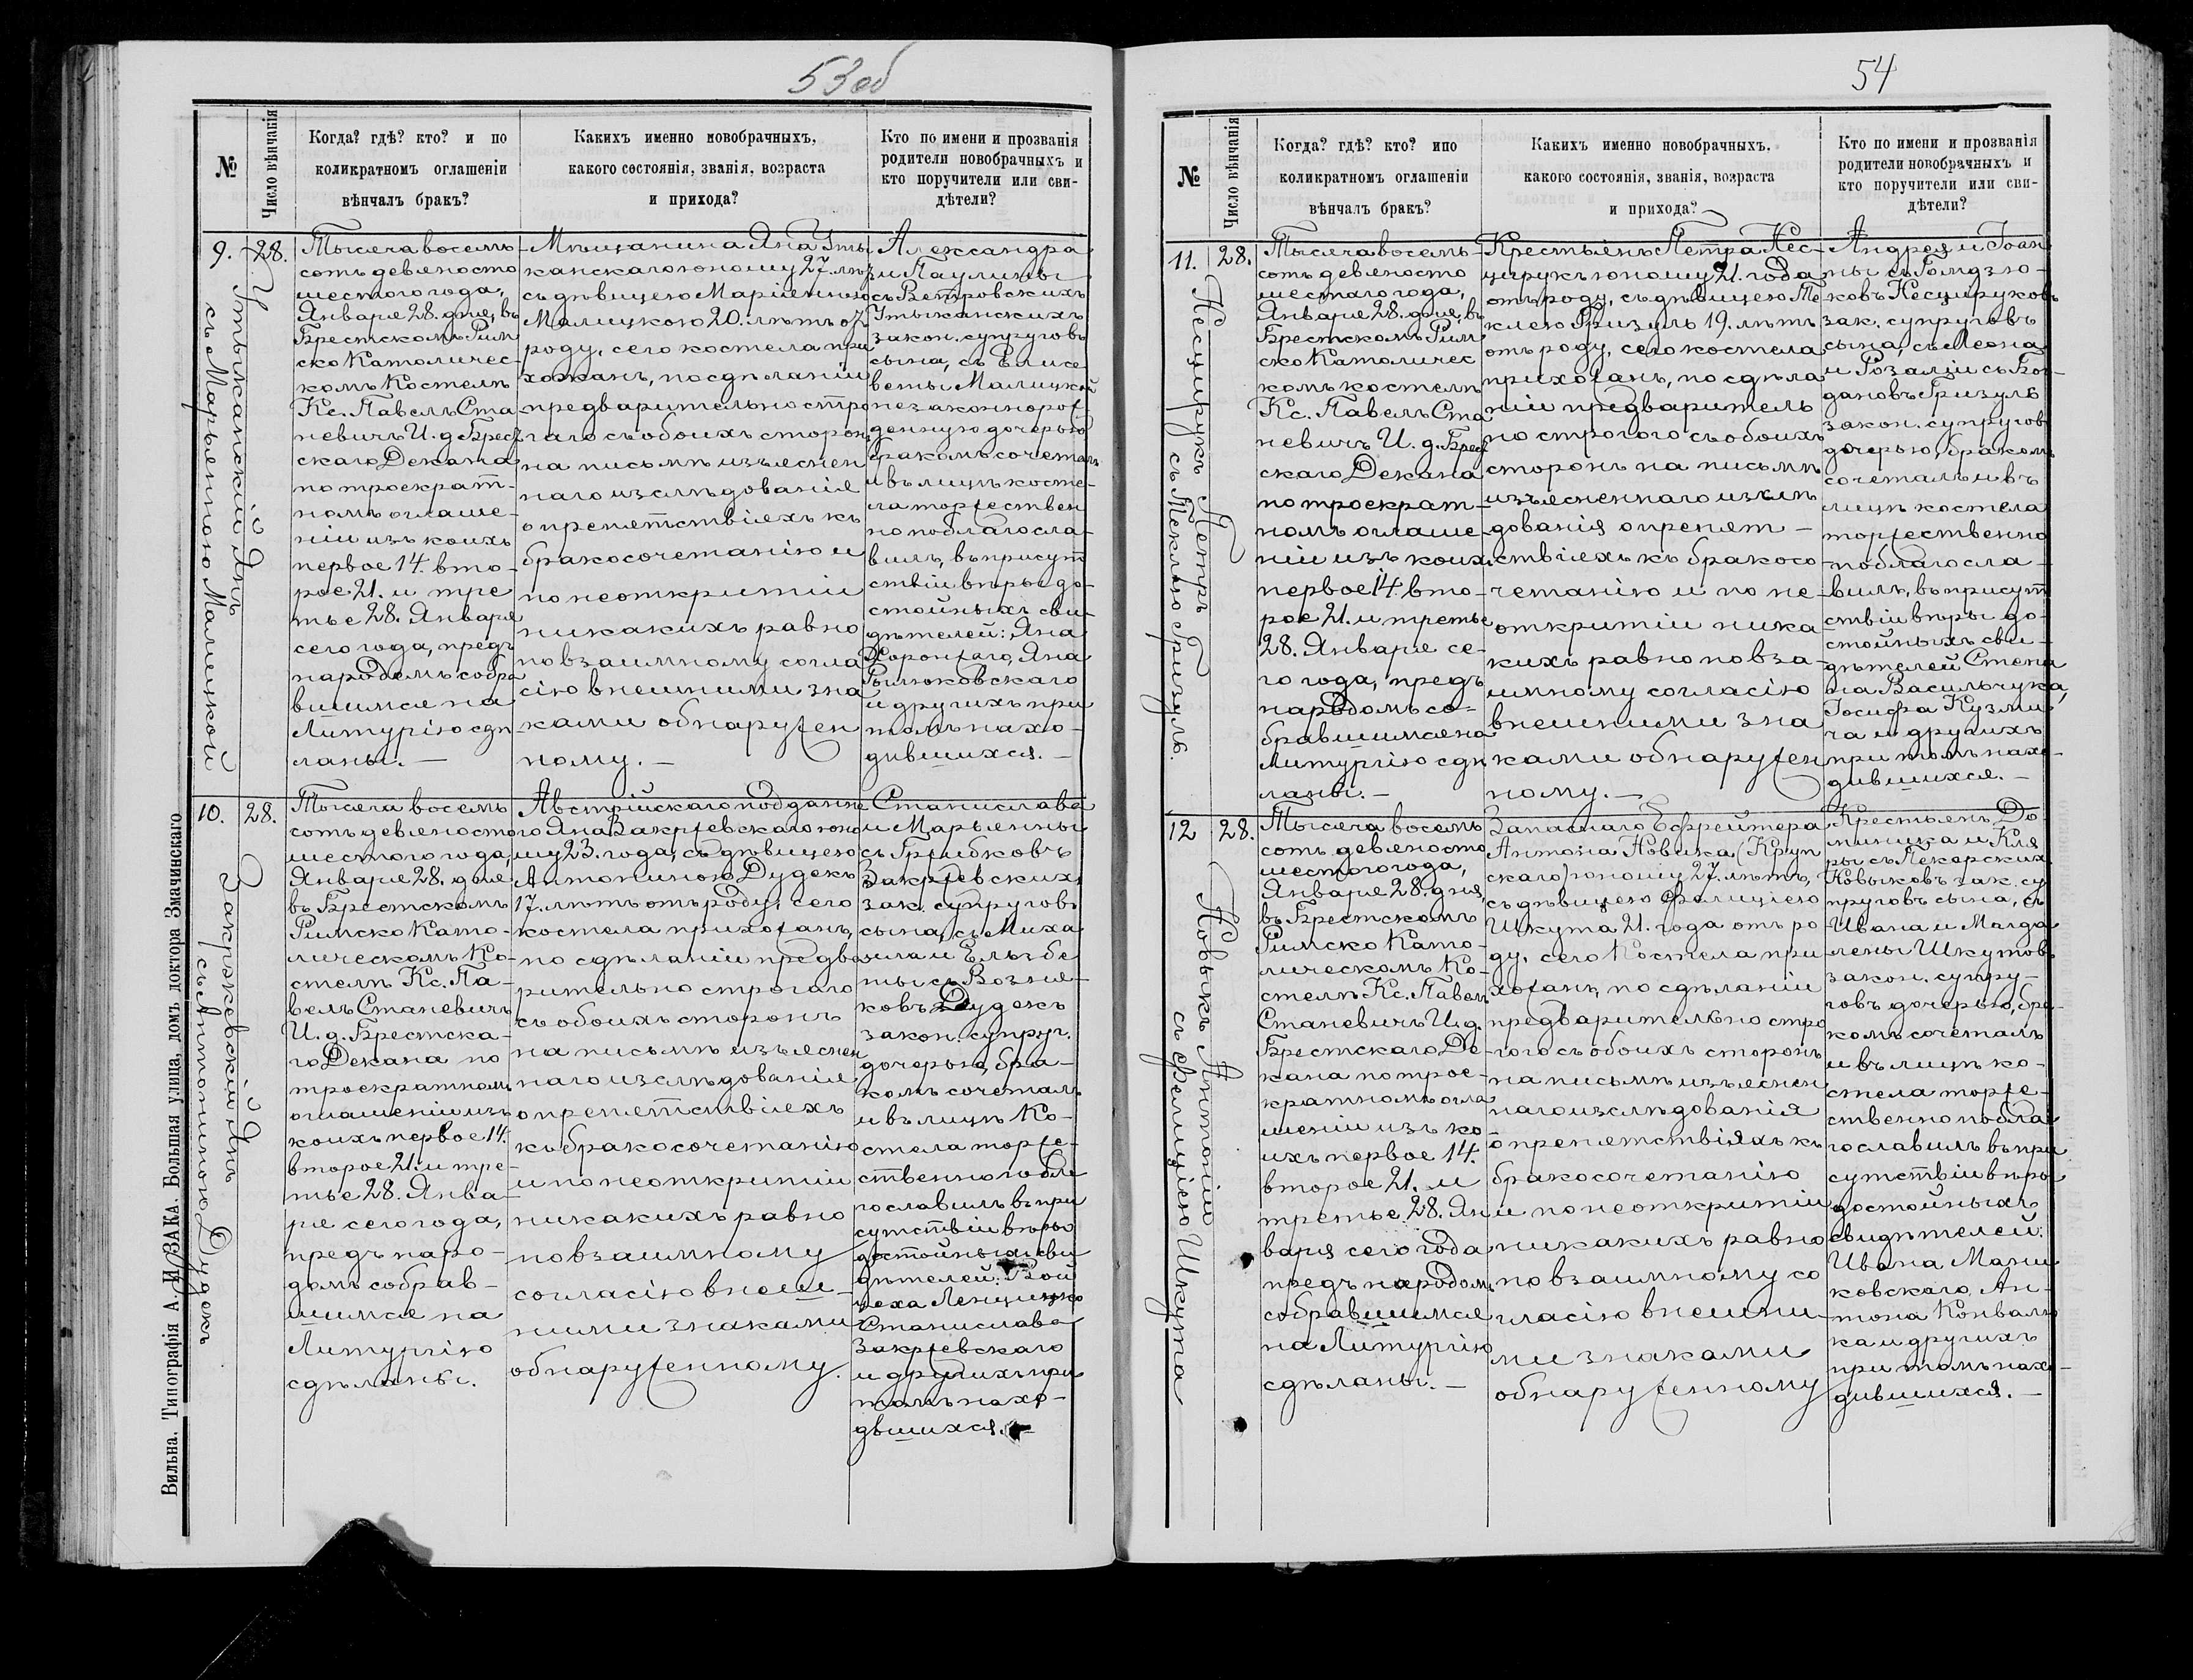 53 об
№
Число вѣнчанія
Когда? гдѣ? кто? и по
коликратномъ оглашеніи
вѣнчалъ бракъ?
Какихъ именно новобрачныхъ,
какого состоянія, званія, возраста
и прихода?
Кто по имени и прозванія
родители новобрачныхъ и
кто поручители или сви-
дѣтели?
9.
28.
Утыканскій Янъ
съ Марьянною Малицкой
Тысяча восемь-
сотъ девяносто
шестого года,
Января 28. дня, въ
Брестскомъ Рим
ско Католичес-
комъ Костелѣ
Кс. Павелъ Ста
невичъ И. д. Брест
скаго Декана
по троекрат-
номъ оглаше-
ніи изъ коихъ
первое 14. вто-
рое 21. и тре
тье 28. Января
сего года, предъ
народомъ собра
вшимся на
Литургію сдѣ
ланы. —
Мѣщанина Яна Уты-
канскаго юношу 27. лѣтъ
съ дѣвицею Маріянною
Малицкою 20. лѣтъ отъ
роду, сего костела при
хожанъ, по сдѣланіи
предварительно стро
гаго съ обоихъ сторонъ
на письмѣ изъяснен
наго изслѣдованія
о препятствіяхъ къ
бракосочетанію и
по неоткрытіи
никакихъ равно
по взаимному согла
сію внешними зна
ками обнаружен
ному. —
Александра
и Паулины
съ Ветровскихъ
Утыканскихъ
закон. супруговъ
сына, съ Елиса
веты Малицкой
незаконнорож
денную дочерью
бракомъ сочеталъ
и въ лицѣ косте-
ла торжествен
но поблагосла-
вилъ, въ присут
ствіи вѣры до-
стойныхъ сви-
дѣтелей: Яна
Хоронжаго, Яна
Рылюковскаго
и другихъ при
томъ нахо-
дившихся. —
10.
28.
Закржевскій Янъ
съ Антониною Дудекъ
Тысяча восемь
сотъ девяносто
шестого года,
Января 28. дня
въ Брестскомъ
Римско Като-
лическомъ Ко-
стелѣ Кс. Па-
велъ Станевичъ
И. д. Брестска-
го Декана по
троекратномъ
оглашеніи изъ
коихъ первое 14.
второе 21. и тре-
тье 28. Янва-
ря сего года,
предъ наро-
домъ собрав-
шимся на
Литургію
сдѣланы.
Австрійскаго подданна
го Яна Закржевскаго юно
шу 23. года, съ дѣвицею
Антониною Дудекъ
17. лѣтъ отъ роду, сего
костела прихожанъ,
по сдѣланіи предва
рительно строгаго
съ обоихъ сторонъ
на письмѣ изъяснен
наго изслѣдованія
о препятствіяхъ
къ бракосочетанію
и по неоткрытіи
никакихъ равно
по взаимному
согласію внеш-
ними знаками
обнаруженному.
Станислава
и Марьянны
съ Грыбковъ
Закржевскихъ
зак. супруговъ
сына, съ Миха
ила и Ельжбе
ты съ Возня-
ковъ Дудекъ
закон. супруг.
дочерью, бра-
комъ сочеталъ
и въ лицѣ Ко-
стела торже-
ственно побла
гославилъ въ при
сутствіи вѣры
достойныхъ сви
дѣтелей: Вой
цеха
Станислава
Закржевскаго
и другихъ при
томъ нахо-
дившихся. —
Вильна. Типографія А. И. ЗАКА. Большая улица, домъ доктора Змачинскаго
54
№
Число вѣнчанія
Когда? гдѣ? кто? ипо
коликратномъ оглашеніи
вѣнчалъ бракъ?
Какихъ именно новобрачныхъ,
какого состоянія, званія, возраста
и прихода?
Кто по имени и прозванія
родители новобрачныхъ и
кто поручители или сви-
дѣтели?
11.
28.
Несцирукъ Петръ
съ Теклею Гризуль.
Тысяча восемь-
сотъ девяносто
шестаго года,
Января 28. дня, въ
Брестскомъ Рим
ско Католичес
комъ костелѣ
Кс. Павелъ Ста
невичъ И. д. Брест
скаго Декана
по троекрат-
номъ оглаше-
ніи изъ коихъ
первое 14. вто-
рое 21. и третье
28. Января се-
го года, предъ
народомъ со-
бравшимся на
Литургію сдѣ
ланы. —
Крестьянъ Петра Нес-
цирукъ юношу 21. года
отъ роду, съ дѣвицею Те
клею Гризуль 19. лѣтъ
отъ роду, сего костела
прихожанъ, по сдѣла
ніи предваритель
но строгого съ обоихъ
сторонъ на письмѣ
изъясненнаго изслѣ
дованія о препят-
ствіяхъ къ бракосо
четанію и по не-
открытіи ника
кихъ равно по вза-
имному согласію
внешними зна
ками обнаружен
ному. —
Андрея и Іоан
ны съ Гомдзю-
ковъ Несцируковъ
зак. супруговъ
сына, съ Леона
и Розаліи съ Бог-
дановъ Гризуль
закон. супруговъ
дочерью, бракомъ
сочеталъ и въ
лицѣ костела
торжественно
поблагосла-
вилъ, въ присут
ствіи вѣры до-
стойныхъ сви-
дѣтелей Степа
на Васильчука,
Іосифа Кузми
ча и другихъ
при томъ нахо-
дившихся. —
12
28.
Новыкъ Антоній
съ Фелиціею Шкута
Тысяча восемь
сотъ девяносто
шестого года,
Января 28. дня,
въ Брестскомъ
Римско Като-
лическомъ Ко-
стелѣ Кс. Павелъ
Станевичъ И. д.
Брестскаго Де-
кана по трое-
кратномъ огла
шеніи изъ ко-
ихъ первое 14.
второе 21. и
третье 28. Ян
варя сего года
предъ народомъ
собравшимся
на Литургію
сдѣланы. —
Запаснаго Ефрейтера
Антона Новика (Круп
скаго) юношу 27. лѣтъ,
съ дѣвицею Фелиціею
Шкута 21. года отъ ро
ду, сего Костела при
хожанъ, по сдѣланіи
предварительно стро
гого съ обоихъ сторонъ
на письмѣ изъяснен
наго изслѣдованія
о препятствіяхъ къ
бракосочетанію
и по неоткрытіи
никакихъ равно
по взаимному со
гласію внешни-
ми знаками
обнаруженному
Крестьянъ До-
миника и Кля
ры съ Пекарскихъ
Новыковъ зак. су
пруговъ сына, съ
Ивана и Магда
лены Шкутовъ
закон. супру-
говъ дочерью, бра-
комъ сочеталъ
и въ лицѣ ко-
стела торже-
ственно побла
гославилъ въ при
сутствіи вѣры
достойныхъ
свидѣтелей:
Ивана Мани
ковскаго, Ан-
тона Конвалю
ка и другихъ
при томъ нахо-
дившихся. —